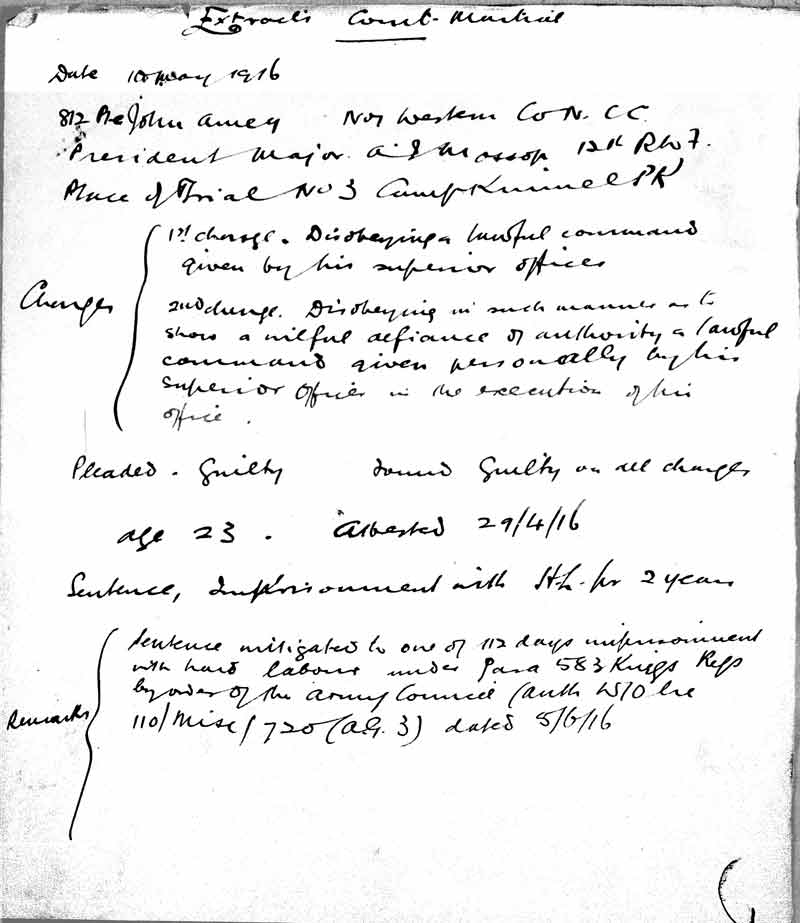 Extracts Court-Martial
Date 10 May 1916
812 Pte John Amey No 1 Western Co N.C.C.
President Major Mossop 12th RWF.
Place of Trial No 3 Camp Kinmel PK
1st charge. Disobeying a lawful command
given by his superior officer
Charges
2nd charge. Disobeying in such manner as to
show a wilful defiance of authority a lawful
command given personally by his
superior officer in the execution of his
office.
Pleaded - Guilty Found Guilty on all charges
age 23. Attested 29/4/16
Sentence, Imprisonment with H.L. for 2 years
Sentence mitigated to one of 112 days imprisonment
with hard labour under para 583 Kings Regs
by order of the Army Council (auth W/O
Remarks
110/Misc/720 (A.G. 3) dated 5/6/16